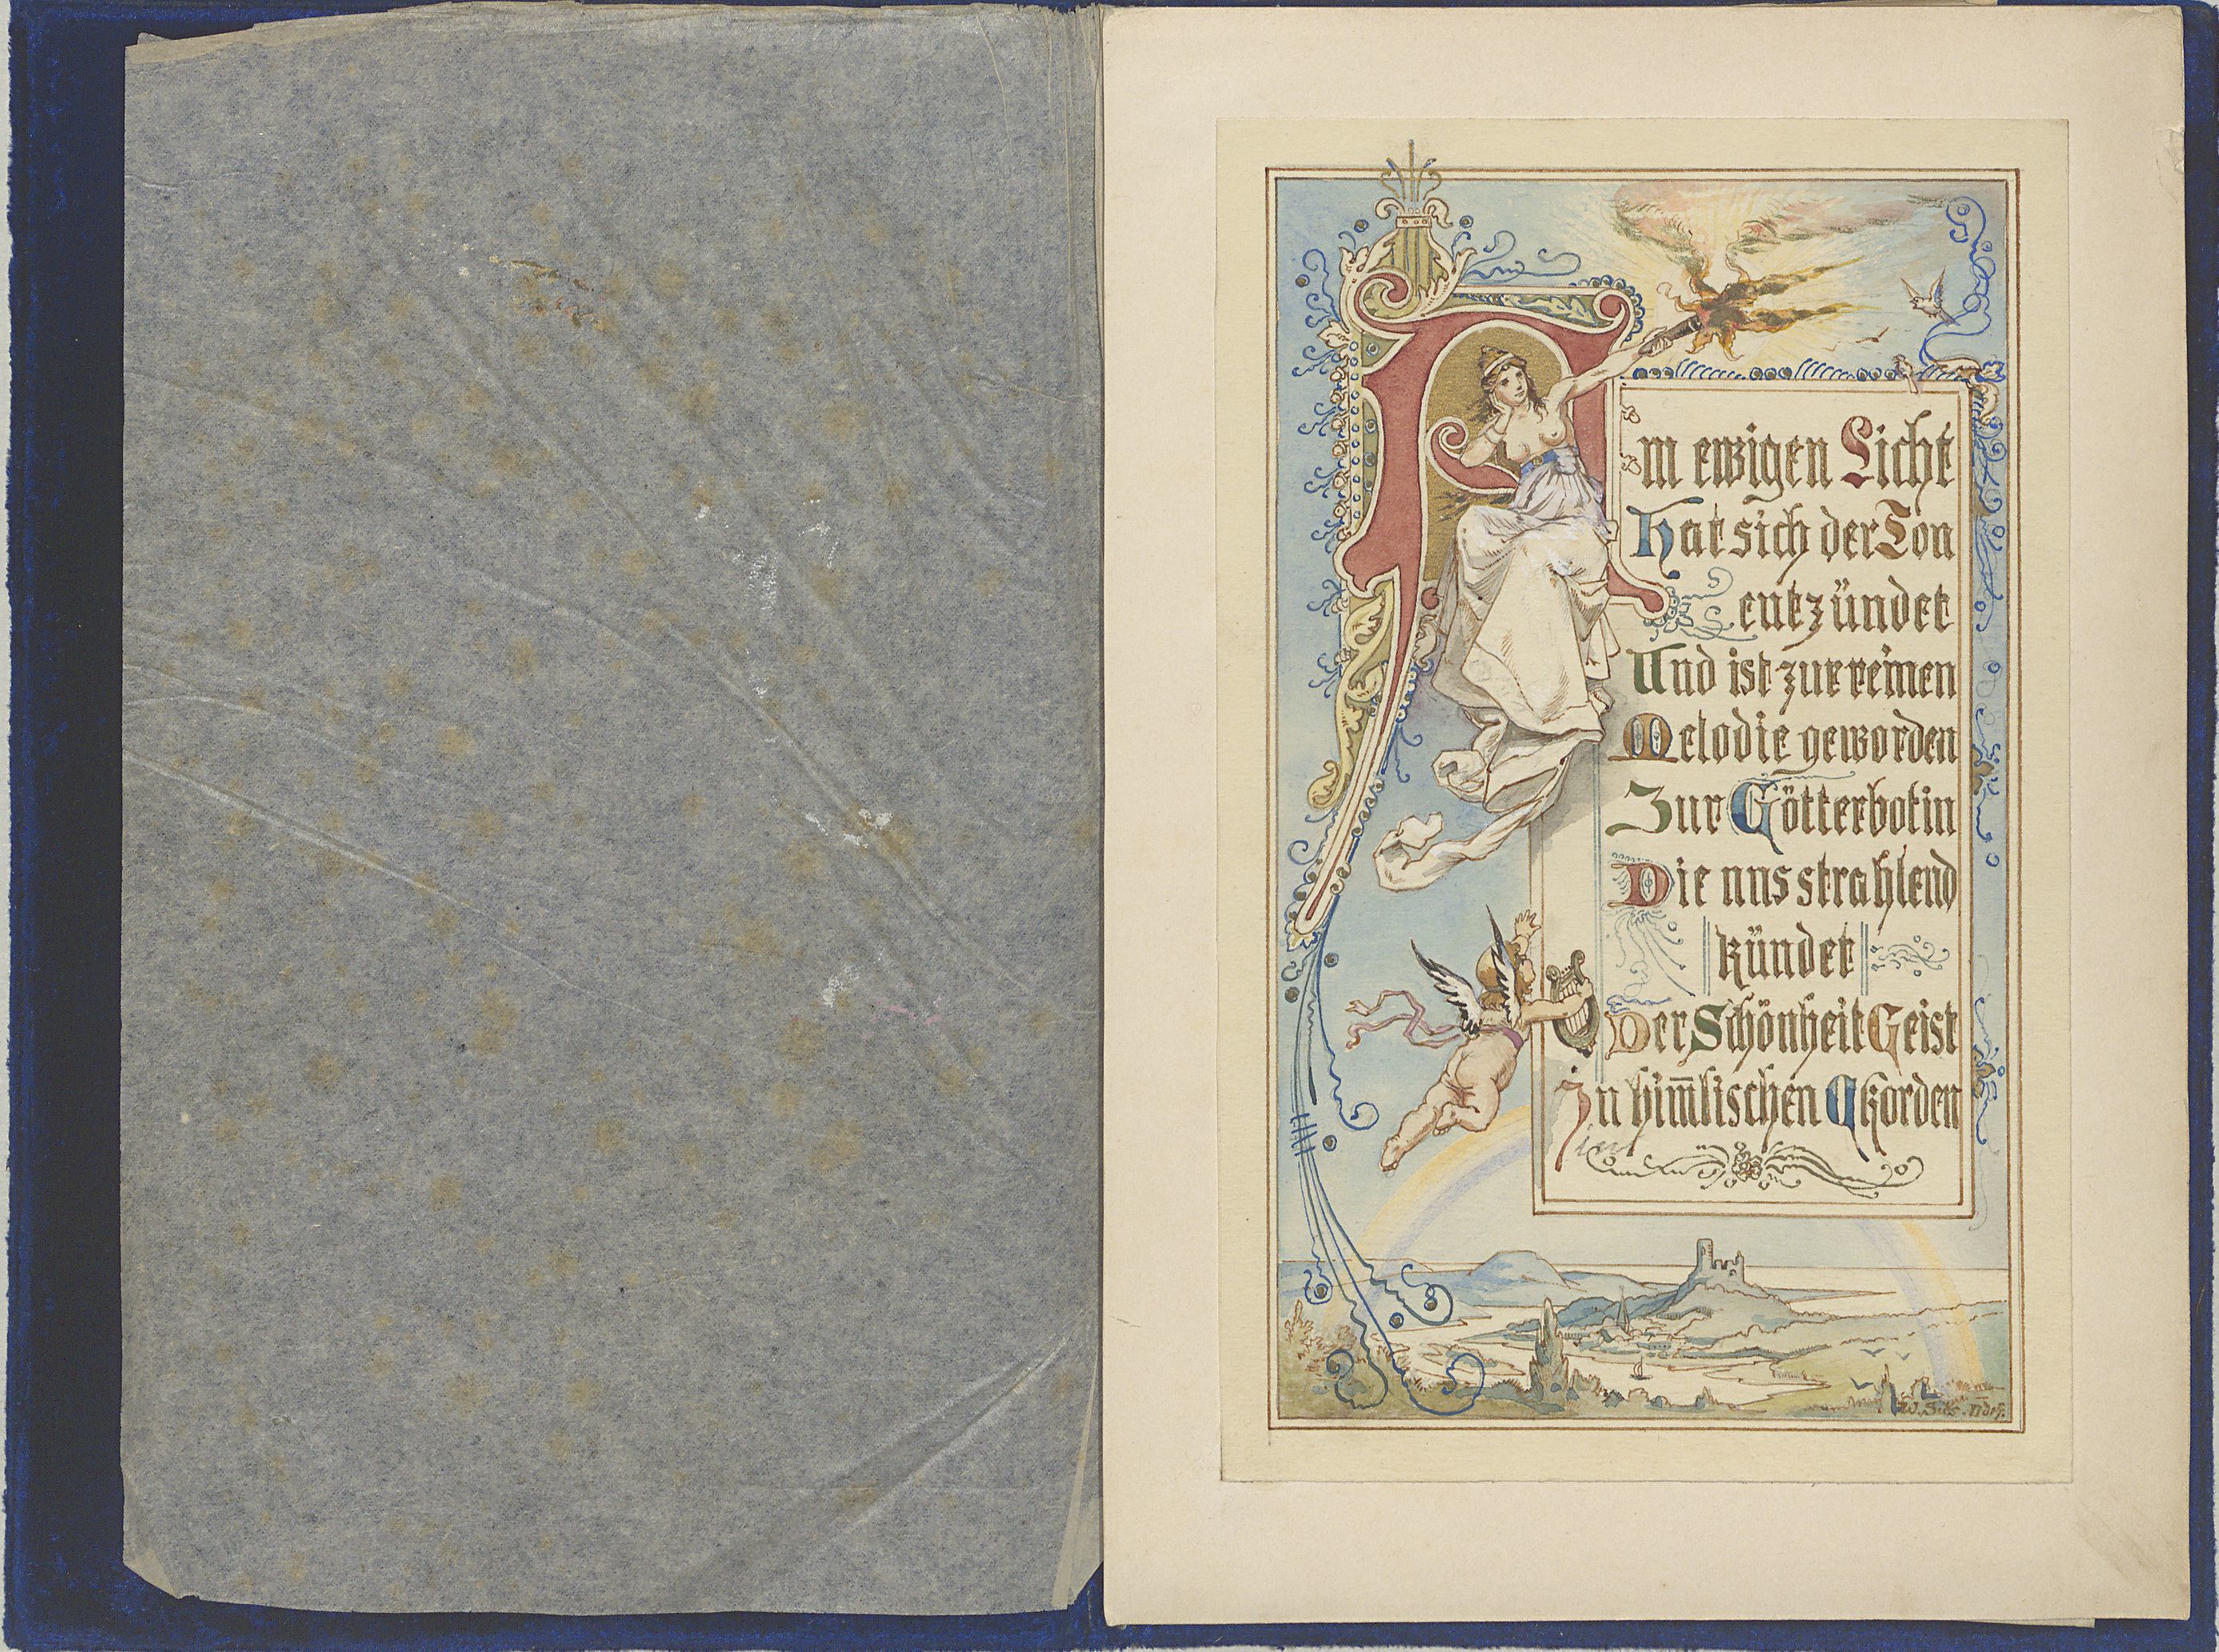 Am ewigen Licht
Hat sich der Ton
entzündet
Und ist zur reinen
Melodie geworden
Zur Götterbotin
Die uns strahlend
kündet
Der Schönheit Geist
In him̅lischen Akorden
in